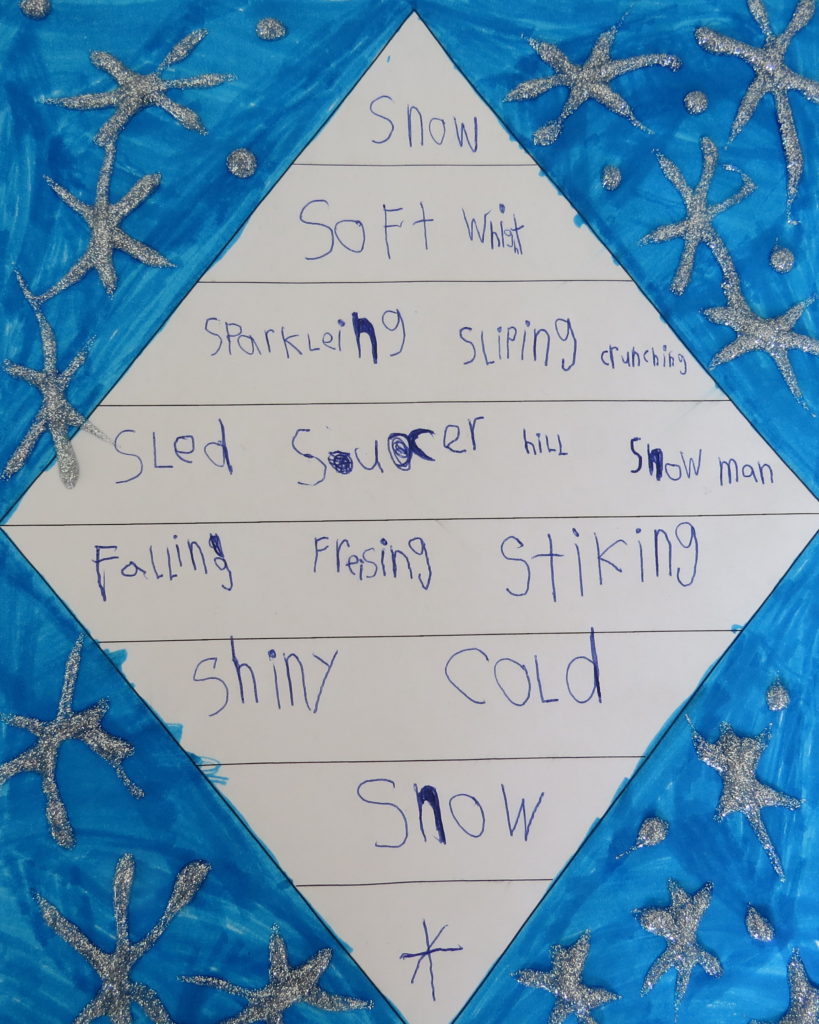 Snow
Soft Whight
Sparkleing Sliping crunching
Sled Souocer hill Snow man
Falling Freising Stiking
Shiny Cold
Snow